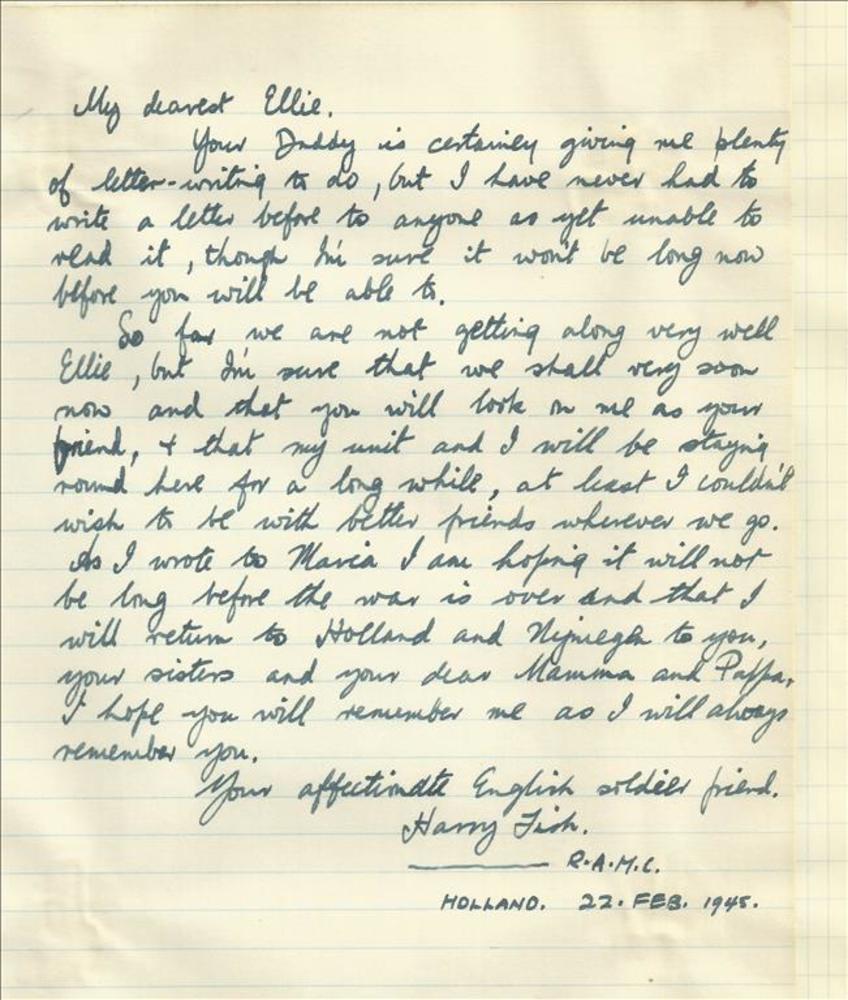 My dearest Ellie.
Your Daddy is certainley giving me plenty
of letter-writing to do, but I have never had to
write a letter before to anyone as yet unable to
read it, though I'm sure it won't be long now
before you will be able to.
So far we are not getting along very well
Ellie, but I'm sure that we shall very soon
now and that you will look on me as your
friend, & that my unit and I will be staying
round here for a long while, at least I couldn't
wish to be with better friends wherever we go.
As I wrote to Maria I am hoping it will not
be long before the war is over and that I
will return to Holland and Nijmegen to you,
your sisters and your dear Mamma and Pappa,
I hope you will remember me as I will always
remember you.
Your affectionate English soldier friend.
Harry Fish.
R.A.M.C.
HOLLAND. 22. FEB. 1945.